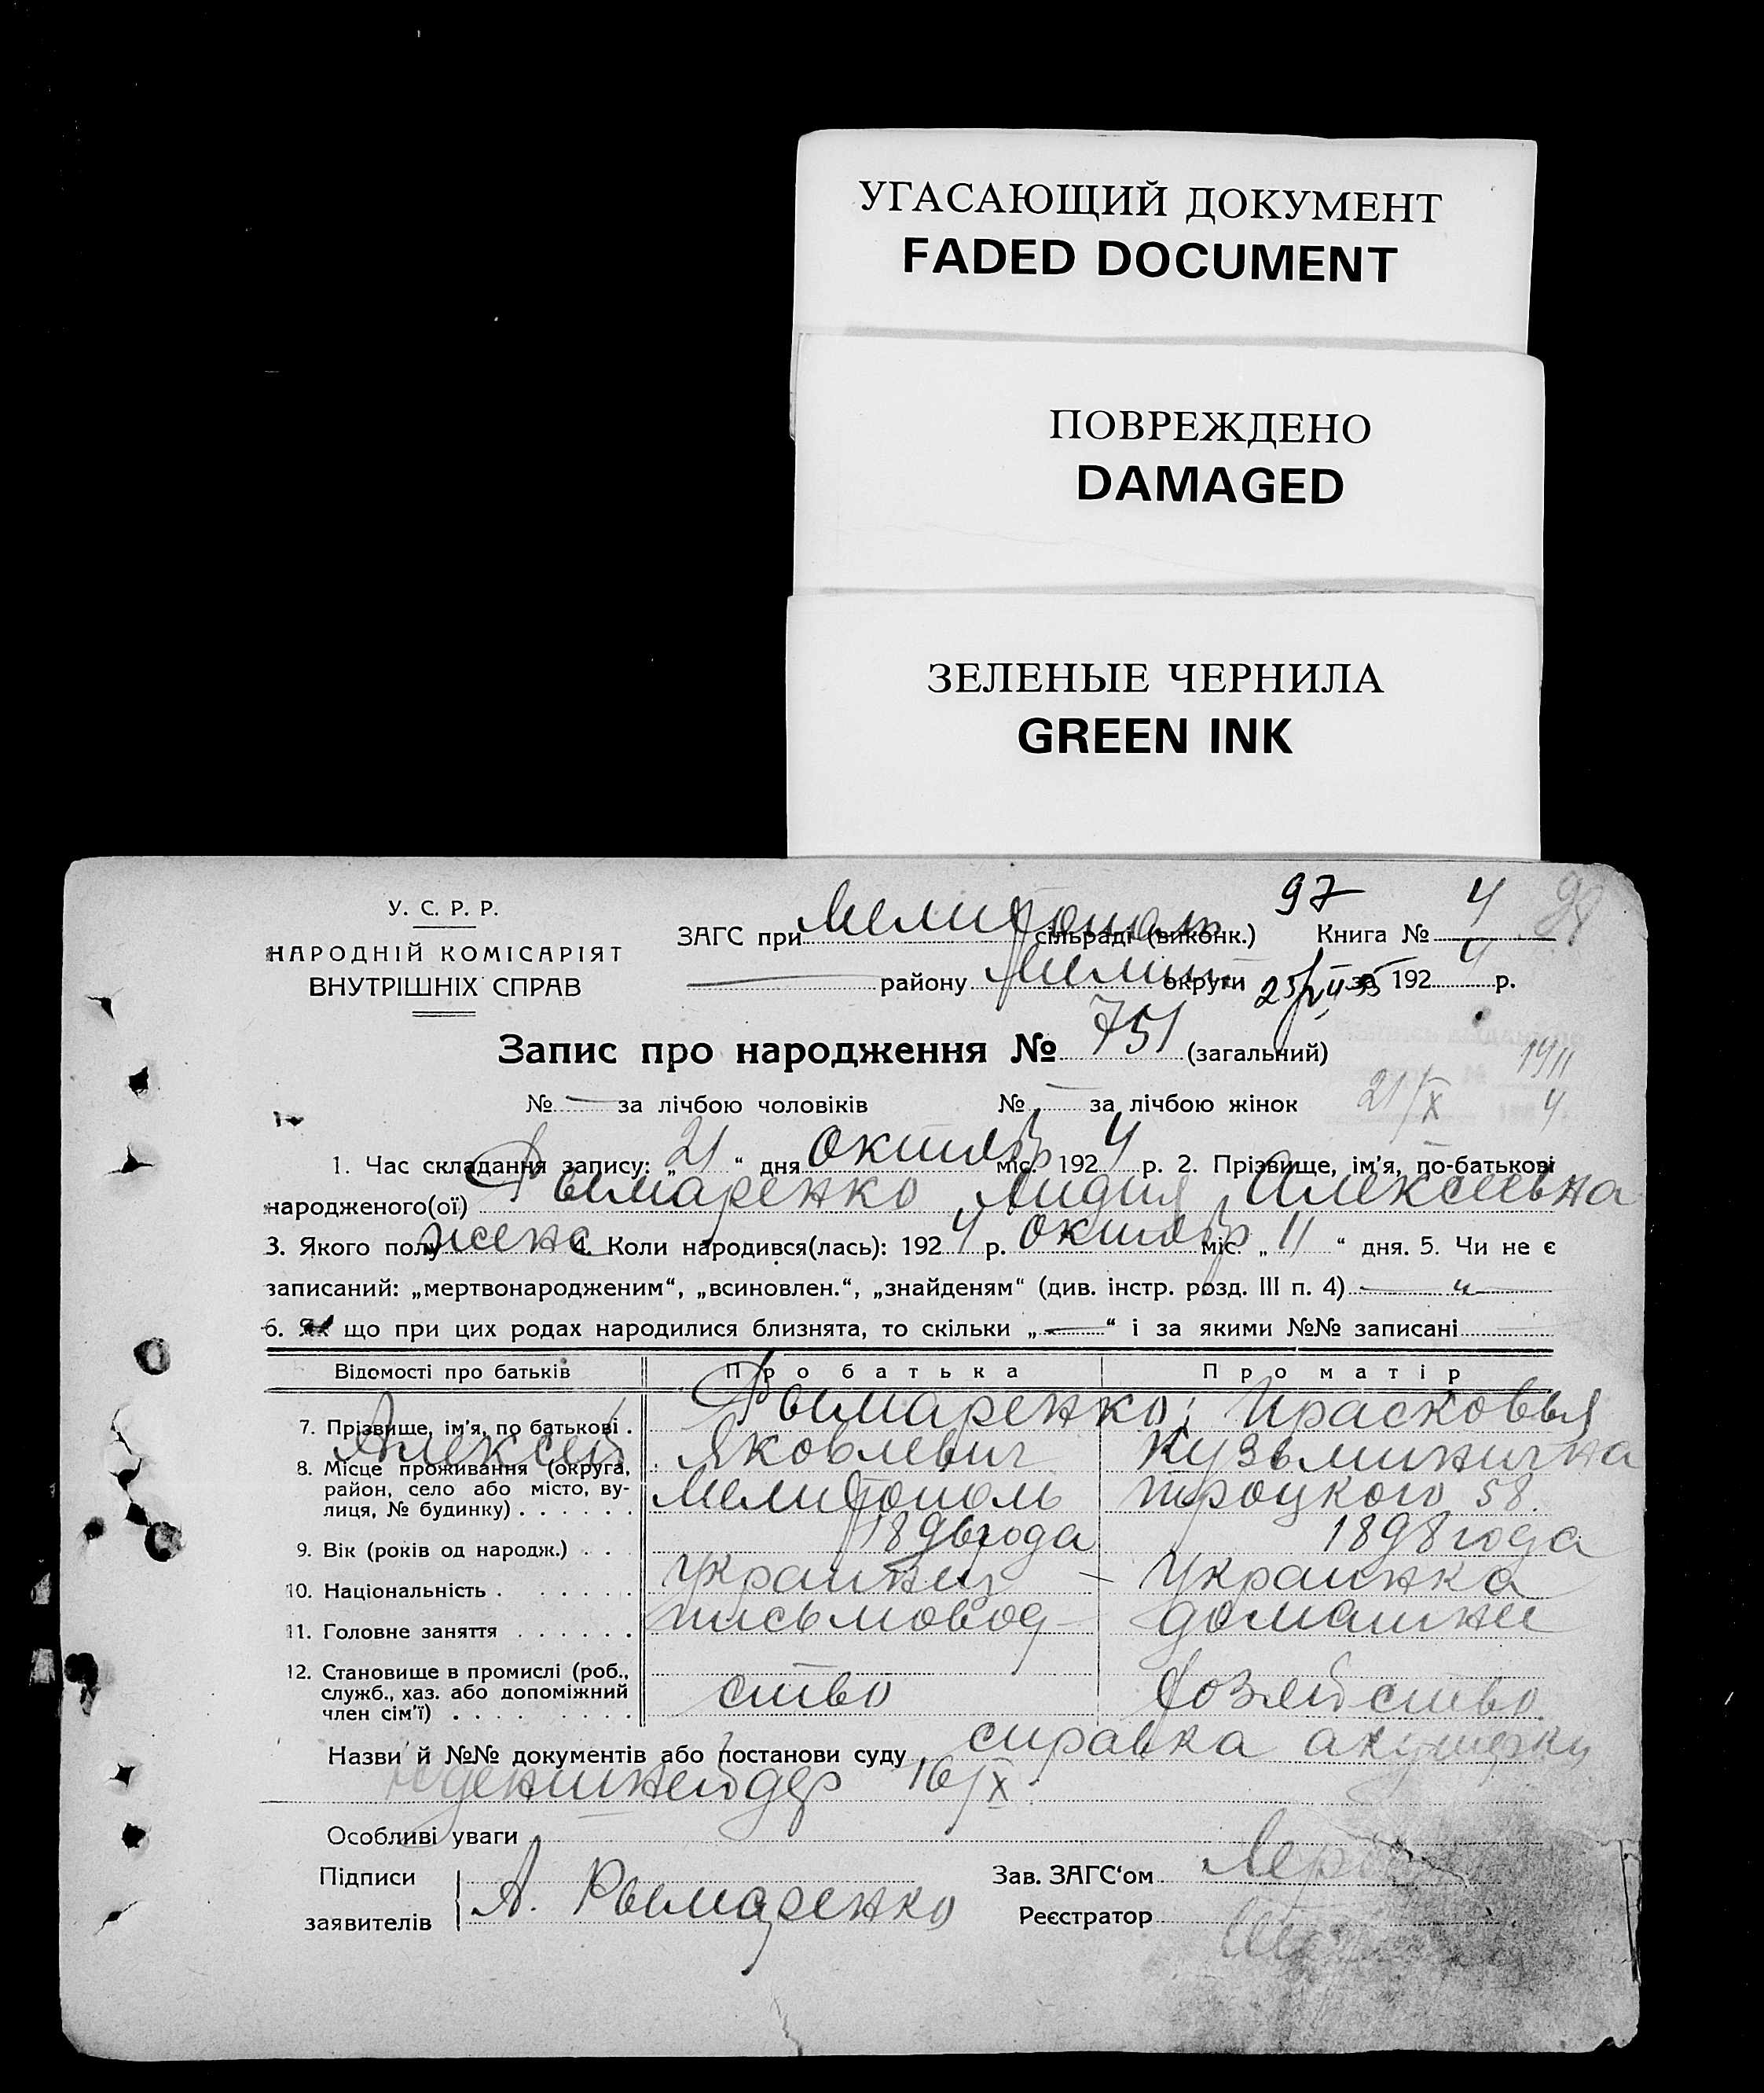 УГАСАЮЩИЙ ДОКУМЕНТ
FADED DOCUMENT
ПОВРЕЖДЕНО
DAMAGED
ЗЕЛЕНЫЕ ЧЕРНИЛА
GREEN INK
У. С. Р. Р.
НАРОДНІЙ КОМІСАРІЯТ
ВНУТРІШНІХ СПРАВ
97
ЗАГС при Мелитополь сільраді (виконк.) Книга № 4
району Мелит округи за 1924 р.
Запис про народження № 751 (загальний)
№ — за лічбою чоловіків № — за лічбою жінок
21/X
1. Час складання запису: „21“ дня октябр міс. 1924 р. 2. Прізвище, ім'я, по-батькові
народженого(ої) Рымаренко Лидия Алексеевна
3. Якого полу женс 4. Коли народився(лась): 1924 р. октябр міс. „11“ дня. 5. Чи не є
записаний: „мертвонародженим“, „всиновлен.“, „знайденям“ (див. інстр. розд. III п. 4)
6. Як що при цих родах народилися близнята, то скільки „—“ і за якими №№ записані
Відомості про батьків Про батька Про матір
7. Прізвище, ім'я, по батькові . Рымаренко; Прасковья
Алексей Яковлевич Кузьминична
8. Місце проживання (округа,
район, село або місто, ву-
лиця, № будинку) . . . . . . Мелитополь Троцкого 58.
9. Вік (років од народж.) . . . 1896 года 1898 года
10. Національність . . . . . . Украинец Украинка
11. Головне заняття . . . . . . письмовод- домашне
12. Становище в промислі (роб.,
служб., хаз. або допоміжний
член сім'ї) . . . . . . . . ство хозяйство
Назви й №№ документів або постанови суду справка акушерки
16/X
Особливі уваги
Підписи
заявителів А. Рымаренко
Зав. ЗАГС'ом
Реєстратор